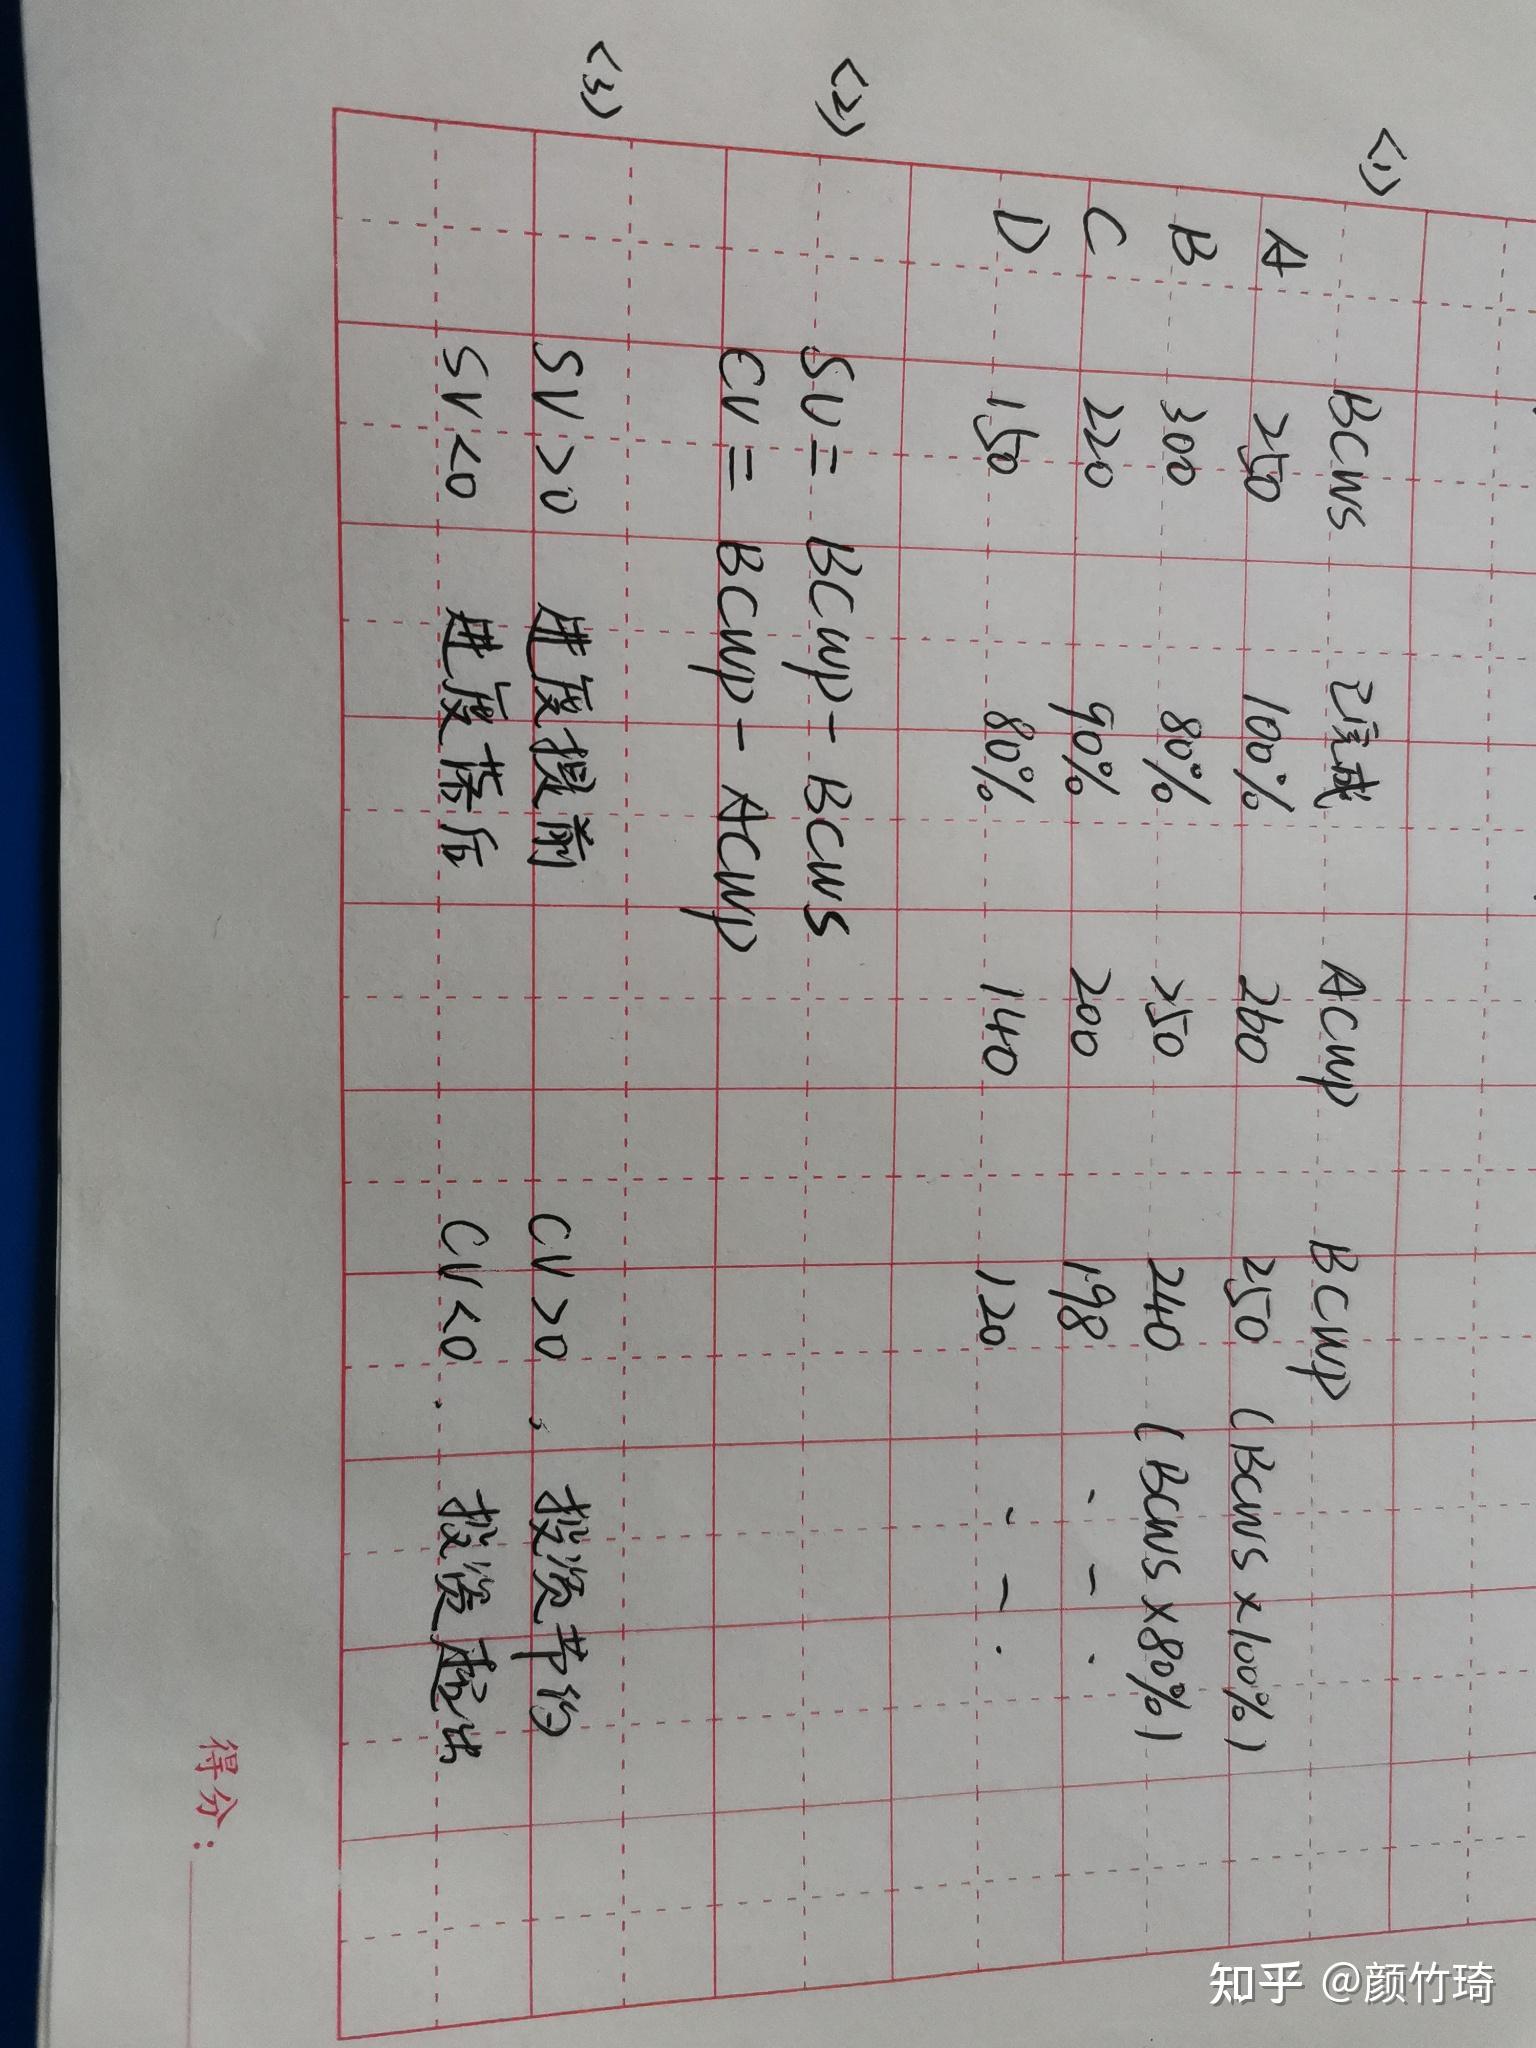 (1) BCWS 已完成 ACWP BCWP
A 250 100% 260 250 (BCWS×100%)
B 300 80% 250 240 (BCWS×80%)
C 220 90% 200 198 - - .
D 150 80% 140 120 - - .
(2) SV = BCWP - BCWS
CV = BCWP - ACWP
(3)
SV>0 进度提前 CV>0 , 投资节约
SV<0 进度落后 CV<0 . 投资超出
得分：
知乎 @颜竹琦